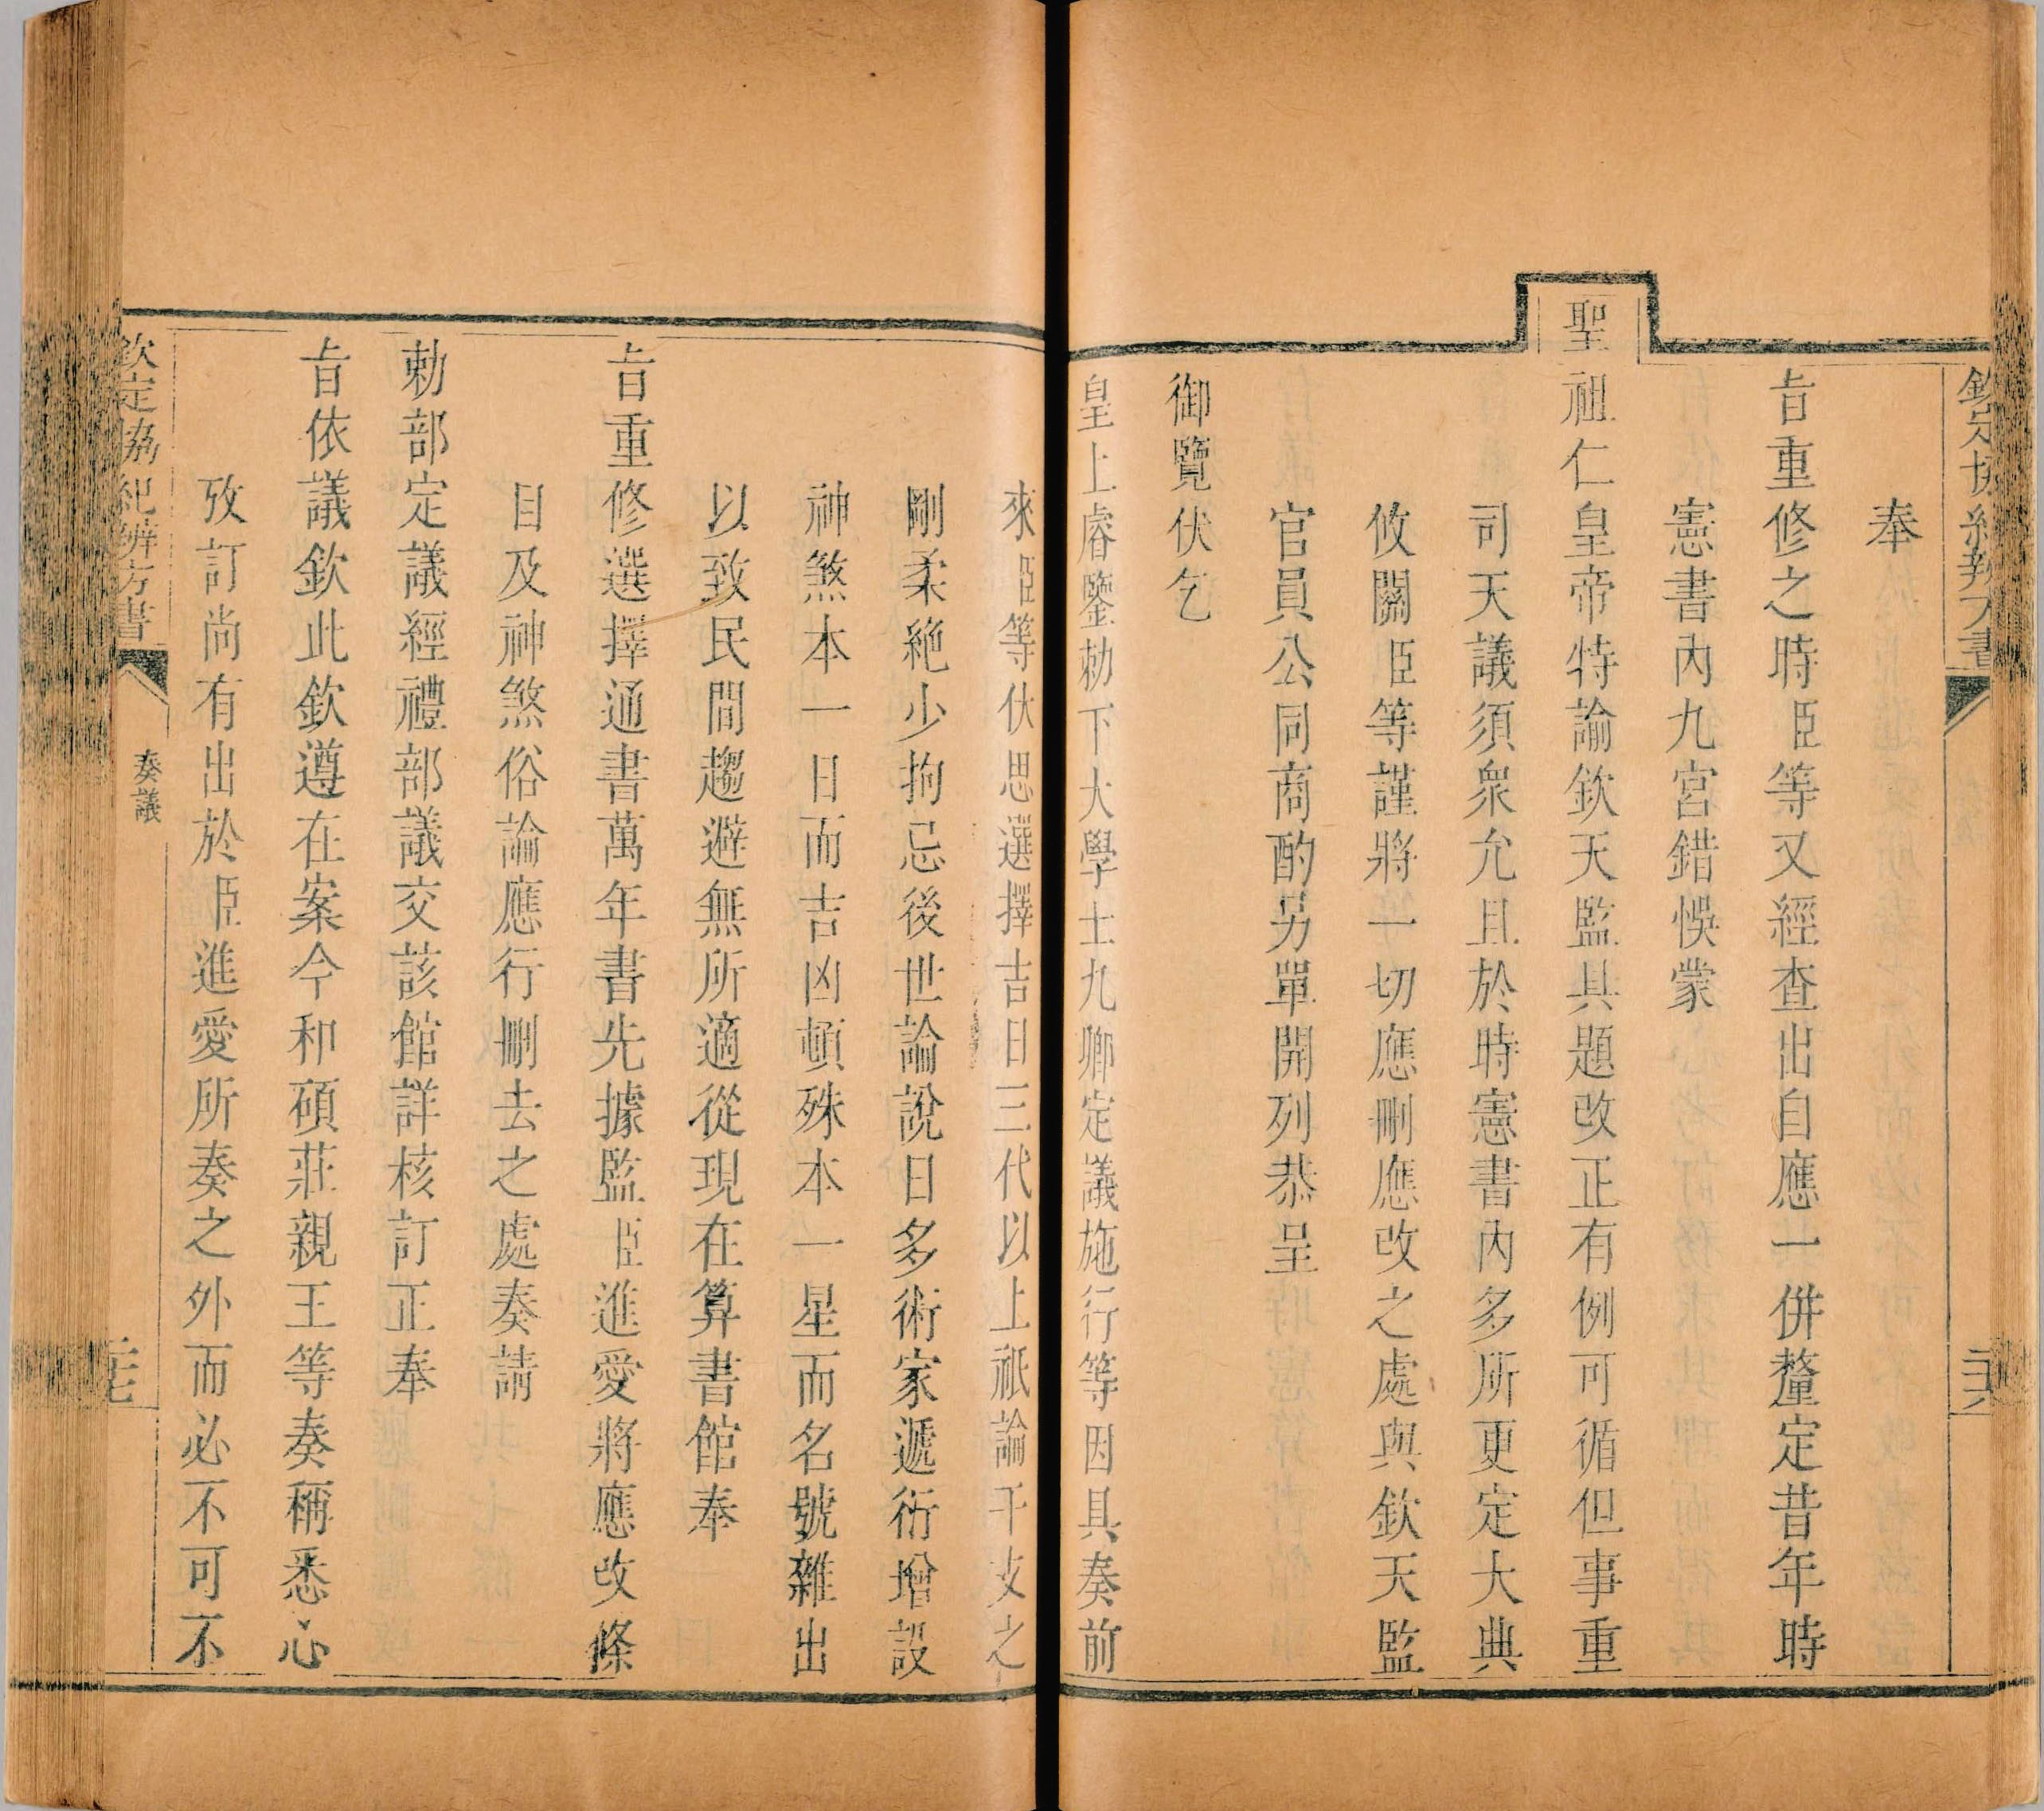 欽定協紀辨方書
二六
奉
旨重修之時臣等又經查出自應一併釐定昔年時
憲書內九宮錯悞蒙
聖祖仁皇帝特諭欽天監具題改正有例可循但事重
司天議須衆允且於時憲書內多所更定大典
攸關臣等謹將一切應刪應改之處與欽天監
官員公同商酌另單開列恭呈
御覽伏乞
皇上睿鑒勅下大學士九卿定議施行等因具奏前
來臣等伏思選擇吉日三代以上祇論干支之
剛柔絶少拘忌後世論說日多術家遞衍增設
神煞本一日而吉凶頓殊本一星而名號雜出
以致民間趨避無所適從現在算書館奉
旨重修選擇通書萬年書先據監臣進愛將應改條
目及神煞俗論應行刪去之處奏請
勅部定議經禮部議交該館詳核訂正奉
旨依議欽此欽遵在案今和碩莊親王等奏稱悉心
攷訂尚有出於臣進愛所奏之外而必不可不
欽定協紀辨方書
奏議
二七